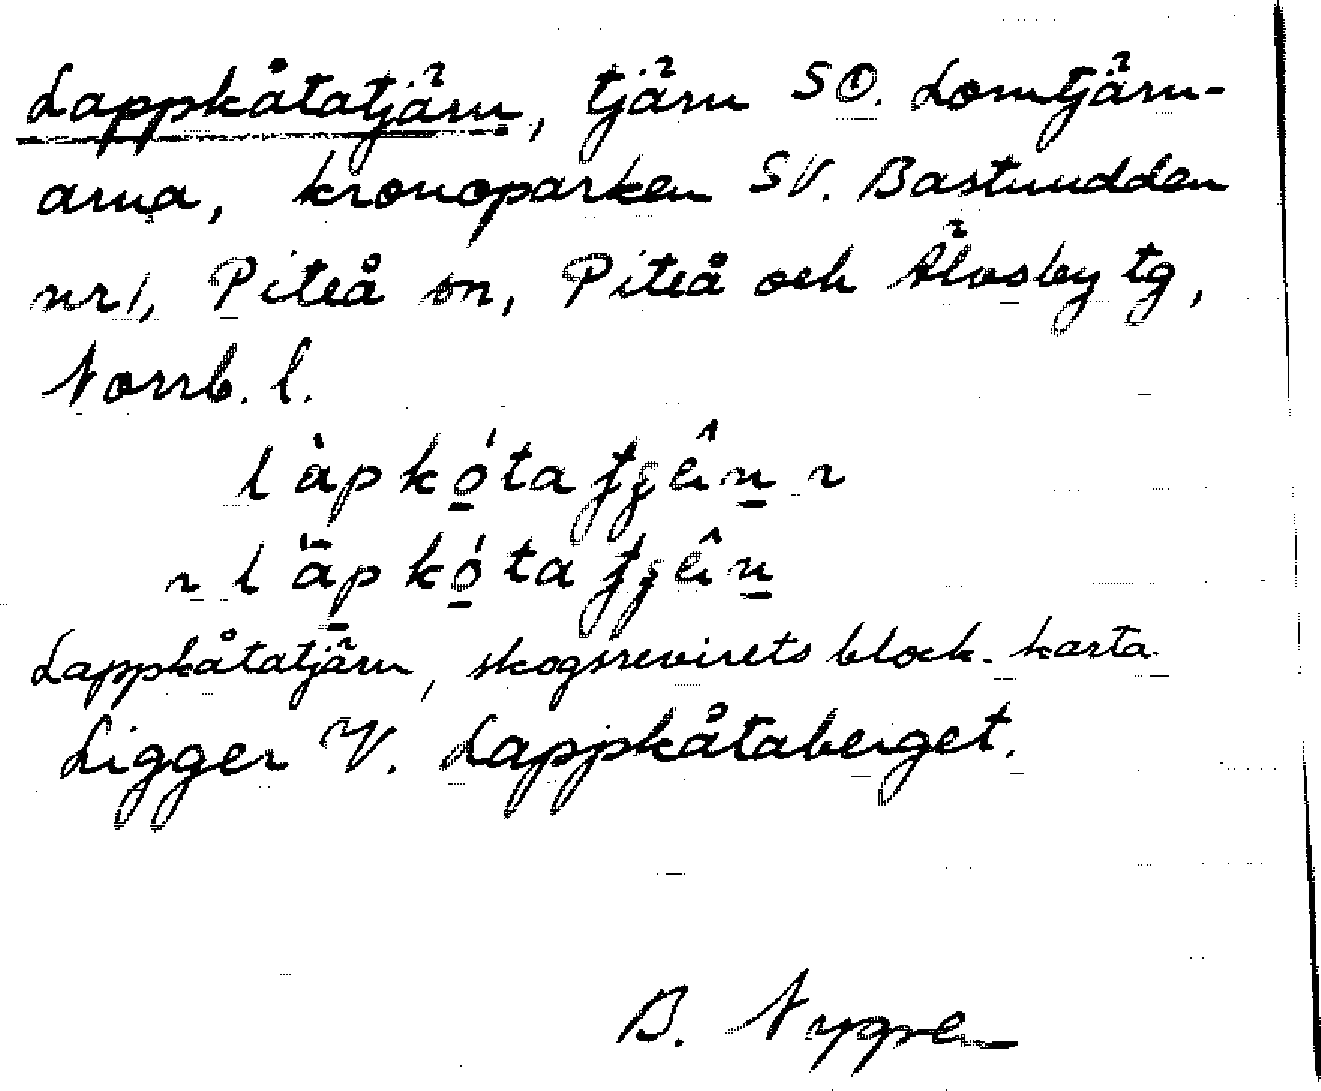 Lappkåtatjärn, tjärn SO. Lomtjärn-
arna, kronoparken SV. Bastuudden
nr 1, Piteå sn, Piteå och Älvsby tg,
Norrb. l.
Lappkåtatjärn, skogsrevirets block-karta
Ligger V. Lappkåtaberget.
B. Nygren